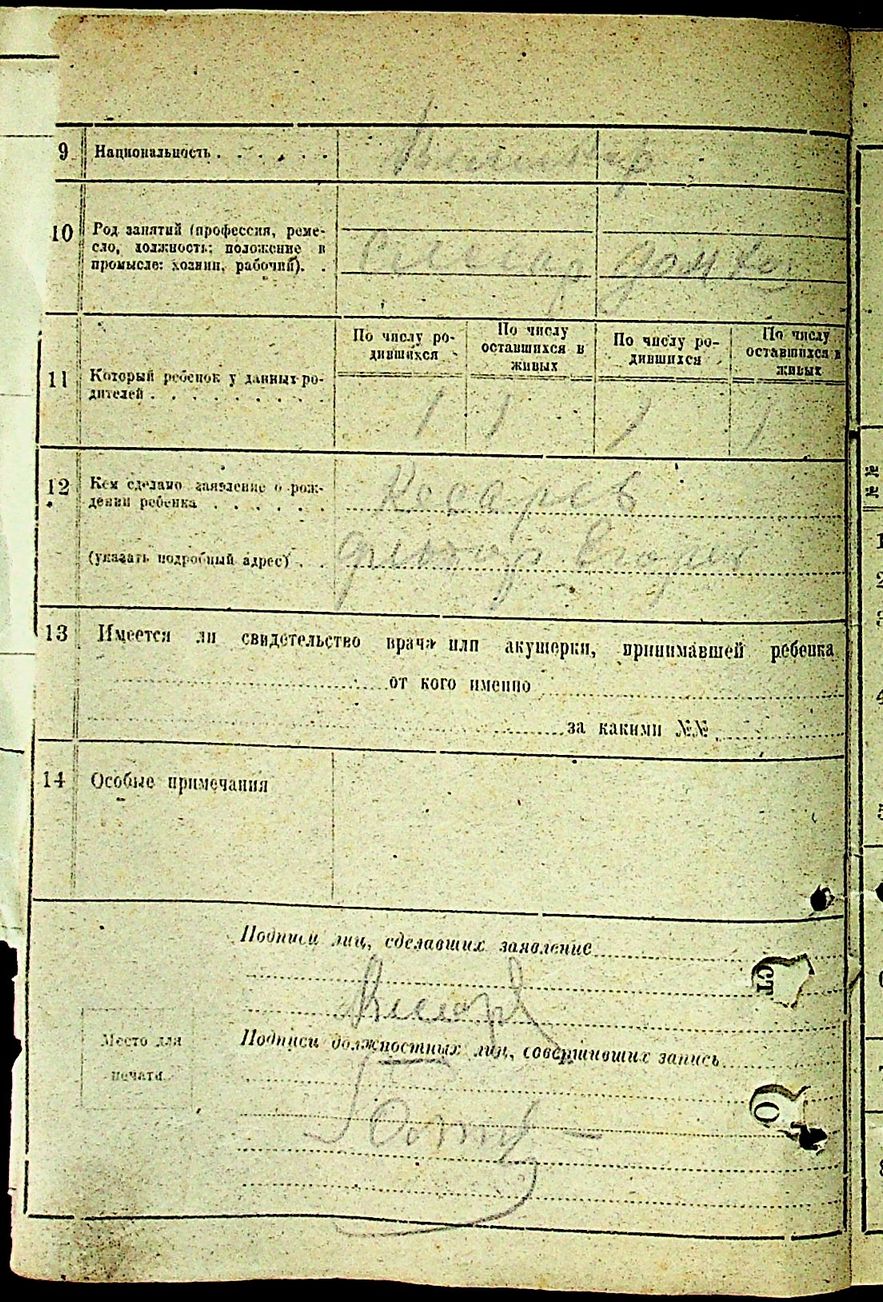 9 Национальность . . . . . .
10 Род занятий (профессия, реме-
сло, должность; положение в
промысле: хозяин, рабочий). .
Слесар домхоз
По числу ро-
дившихся
По числу
оставшихся в
живых
По числу ро-
дившихся
По числу
оставшихся в
живых
11 Который ребенок у данных ро-
дителей . . . . . . . . . .
1 1 1 1
12 Кем сделано заявление о рож-
дении ребенка . . . . . .
Косарев
(указать подробный адрес) . .
Фьодор Егорев
13 Имеется ли свидетельство врача или акушерки, принимавшей ребенка
от кого именно
за какими №№
14 Особые примечания
Подписи лиц, сделавших заявление
Место для
печати
Подписи должностных лиц, совершивших запись
СТ
О